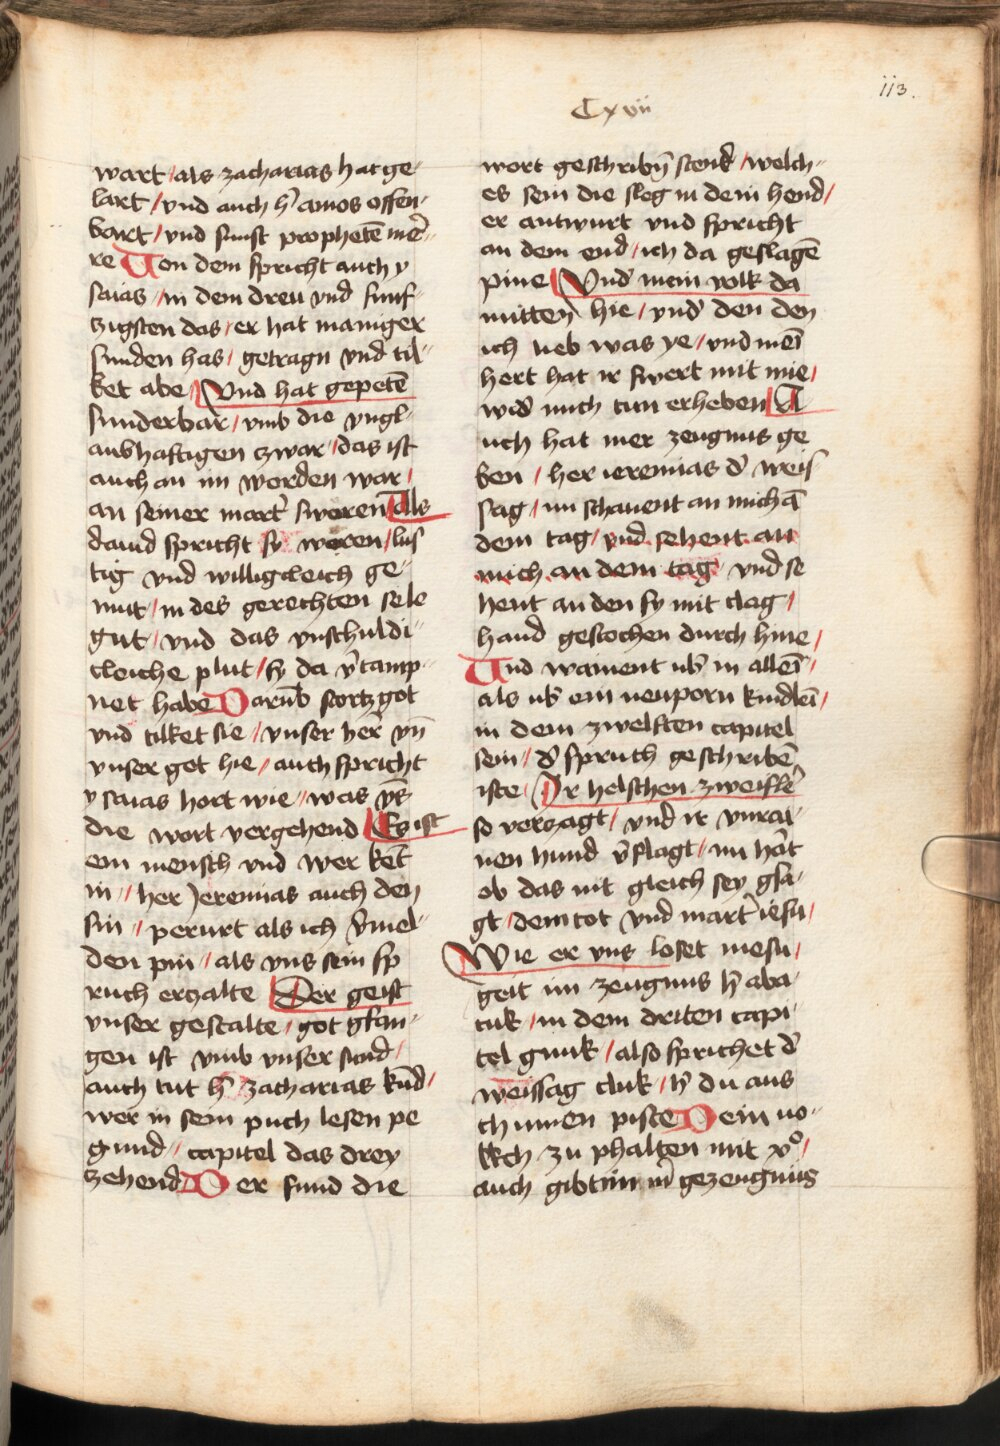 113.
Cxvii
wart / als zacharias hat ge-
lart / vnd auch h̄ amos offen-
bart / vnd sunst prophetē mer̄-
re Von dem spricht auch y
saias / in dem dreu vnd funf-
zigsten das / er hat maniger
sunden has / getragn vnd til-
ket abe / Vnd hat gepetē
sunderbar / vmb die vngl-
aubhaftigen zwar / das ist
auch an im worden war /
an seiner mart̄ sworen Als
dauid spricht sy woren / lus
tig vnd willigcleich ge-
mut / in des gerechten sele
gut / vnd das vnschuldi-
cleiche plut / sy da v̄camp-
net habe Darūb stortz got
vnd tilket sie / vnser her vn̄
vnser got hie / auch spricht
ysaias hort wie / was vs̄
die wort vergehend / Es ist
ein mensch vnd wer kēt
in / her Jeremias auch den
sin / perurt als ich v̄mel-
den pin / als vns sein sp
ruch erzalte Der geist
vnser gestalte / got gfan-
gen ist vmb vnser sund /
auch tut h̄ zacharias kūd /
wer in sein puch lesen pe
gund / capitel das drey
zehend Der sund die
wort geschribn̄ stend̄ / welch-
es sein die sleg in dein hend /
er antwurt vnd spricht
an dem end / ich da geslagē
pine / Vnd mein volk da
mitten hie / vnd den den
ich lieb was ye / vnd mēi
hert hat ir swert mit mie /
wid̄ mich tun erheben A
uch hat mer zeugnus ge
ben / her ieremias d̄ weis
sag / im schauent an mich ā
dem tag / vnd sehent an
mich an dem tag vnd se
hent an den sy mit clag /
hand gestochen durch hine /
Vnd wament ub̄ in allēi /
als ub̄ ein neuporn kindlēi /
in dem zwelften capitel
sein / d̄ spruch geschriben
iste / Ir helschen zweifle͛
so verzagt / vnd ir vnrai-
nen hund v̄flagt / nu hort
ob das nit gleich sey gsa-
gt / dem tot vnd mart̄ iesu /
Wie er vns loset mesu /
geit im zeugnus h̄ aba-
cuk / in dem driten capi-
tel gnuk / also sprichet d̄
weissag cluk / h̄ du aus
chumen piste Dein uo-
lkch zu phalten mit xo /
auch gibt im m̄ gezeugnus